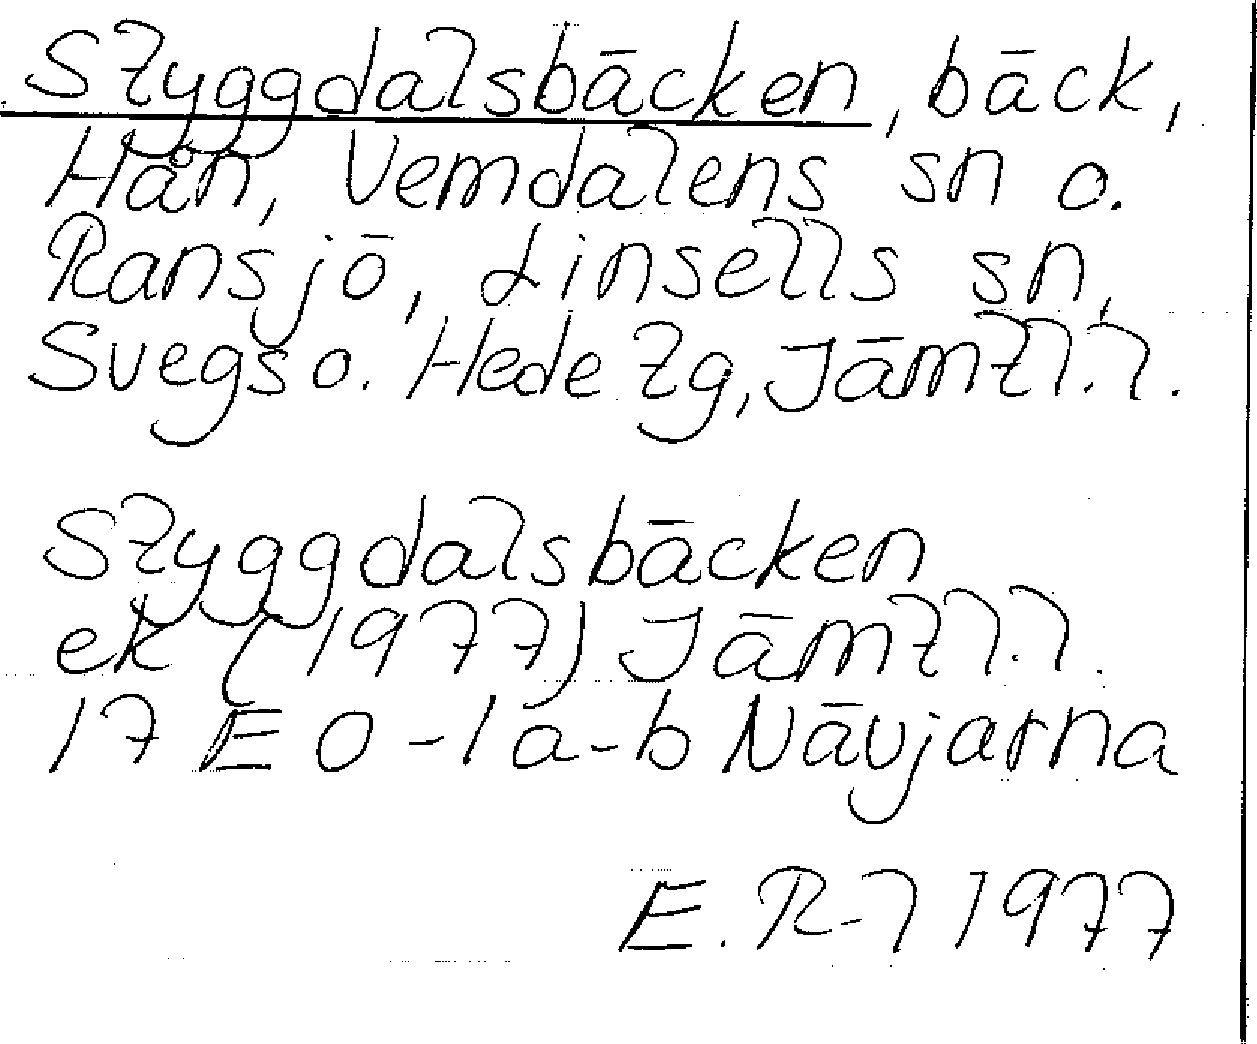 Styggdalsbäcken, bäck,
Hån, Vemdalens sn o.
Ransjö, Linsells sn,
Svegs o. Hede tg, Jämtl.l.
Styggdalsbäcken
ek (1977) Jämtl.l.
17 E 0-1a-b Nävjarna
E. R-l 1977